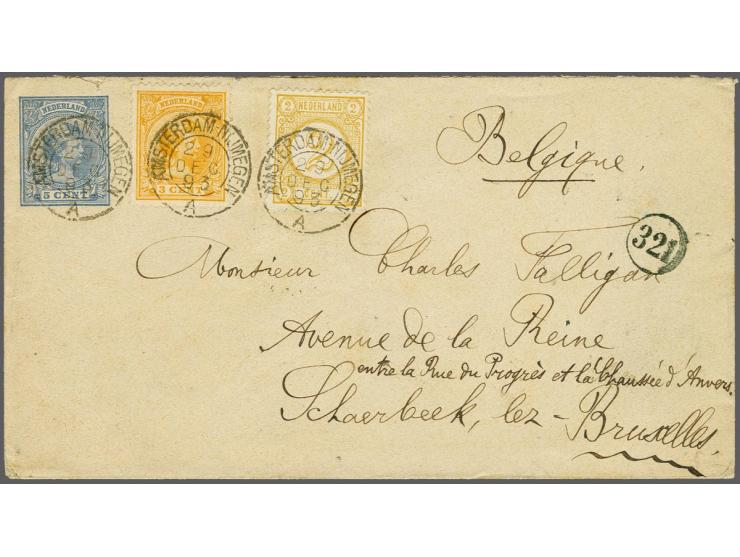 NEDERLAND
5 CENT
NEDERLAND
3 CENT
2 NEDERLAND 2
AMSTERDAM-NIJMEGEN
A
AMSTERDAM-NIJMEGEN
29
DEC
93
A
AMSTERDAM-NIJMEGEN
29
DEC
93
A
Belgique.
321
Monsieur Charles Falligan
Avenue de la Reine
entre la Rue du Progrès et la Chaussée d'Anvers.
Schaerbeek, lez-Bruxelles.